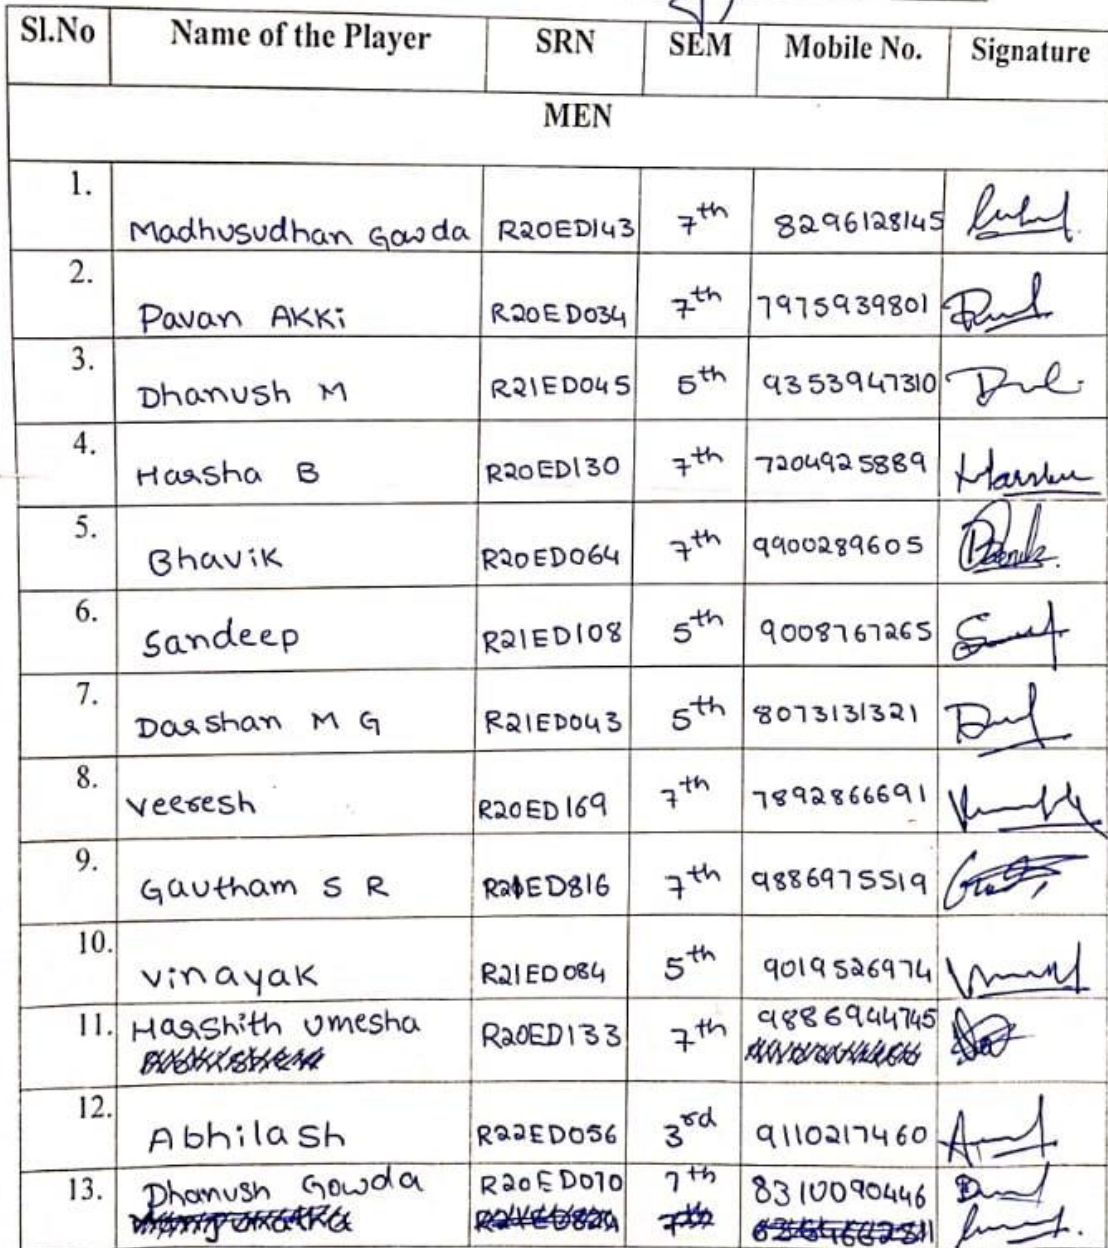 Sl.No Name of the Player SRN SEM Mobile No. Signature
MEN
1. Madhusudhan Gowda R20ED143 7th 8296128145
2. Pavan AKKi R20ED034 7th 7975939801
3. Dhanush M R21ED045 5th 9353947310
4. Harsha B R20ED130 7th 7204925889 Harsha
5. Bhavik R20ED064 7th 9900289605
6. Sandeep R21ED108 5th 9008767265
7. Darshan M G R21ED043 5th 8073131321
8. Veeresh R20ED169 7th 7892866691
9. Gautham S R R21ED816 7th 9886975519
10. Vinayak R21ED084 5th 9019526974
11. Harshith Umesha R20ED133 7th 9886944745
12. Abhilash R22ED056 3rd 9110217460
13. Dhanush Gowda R20ED070 7th 8310090446
7th